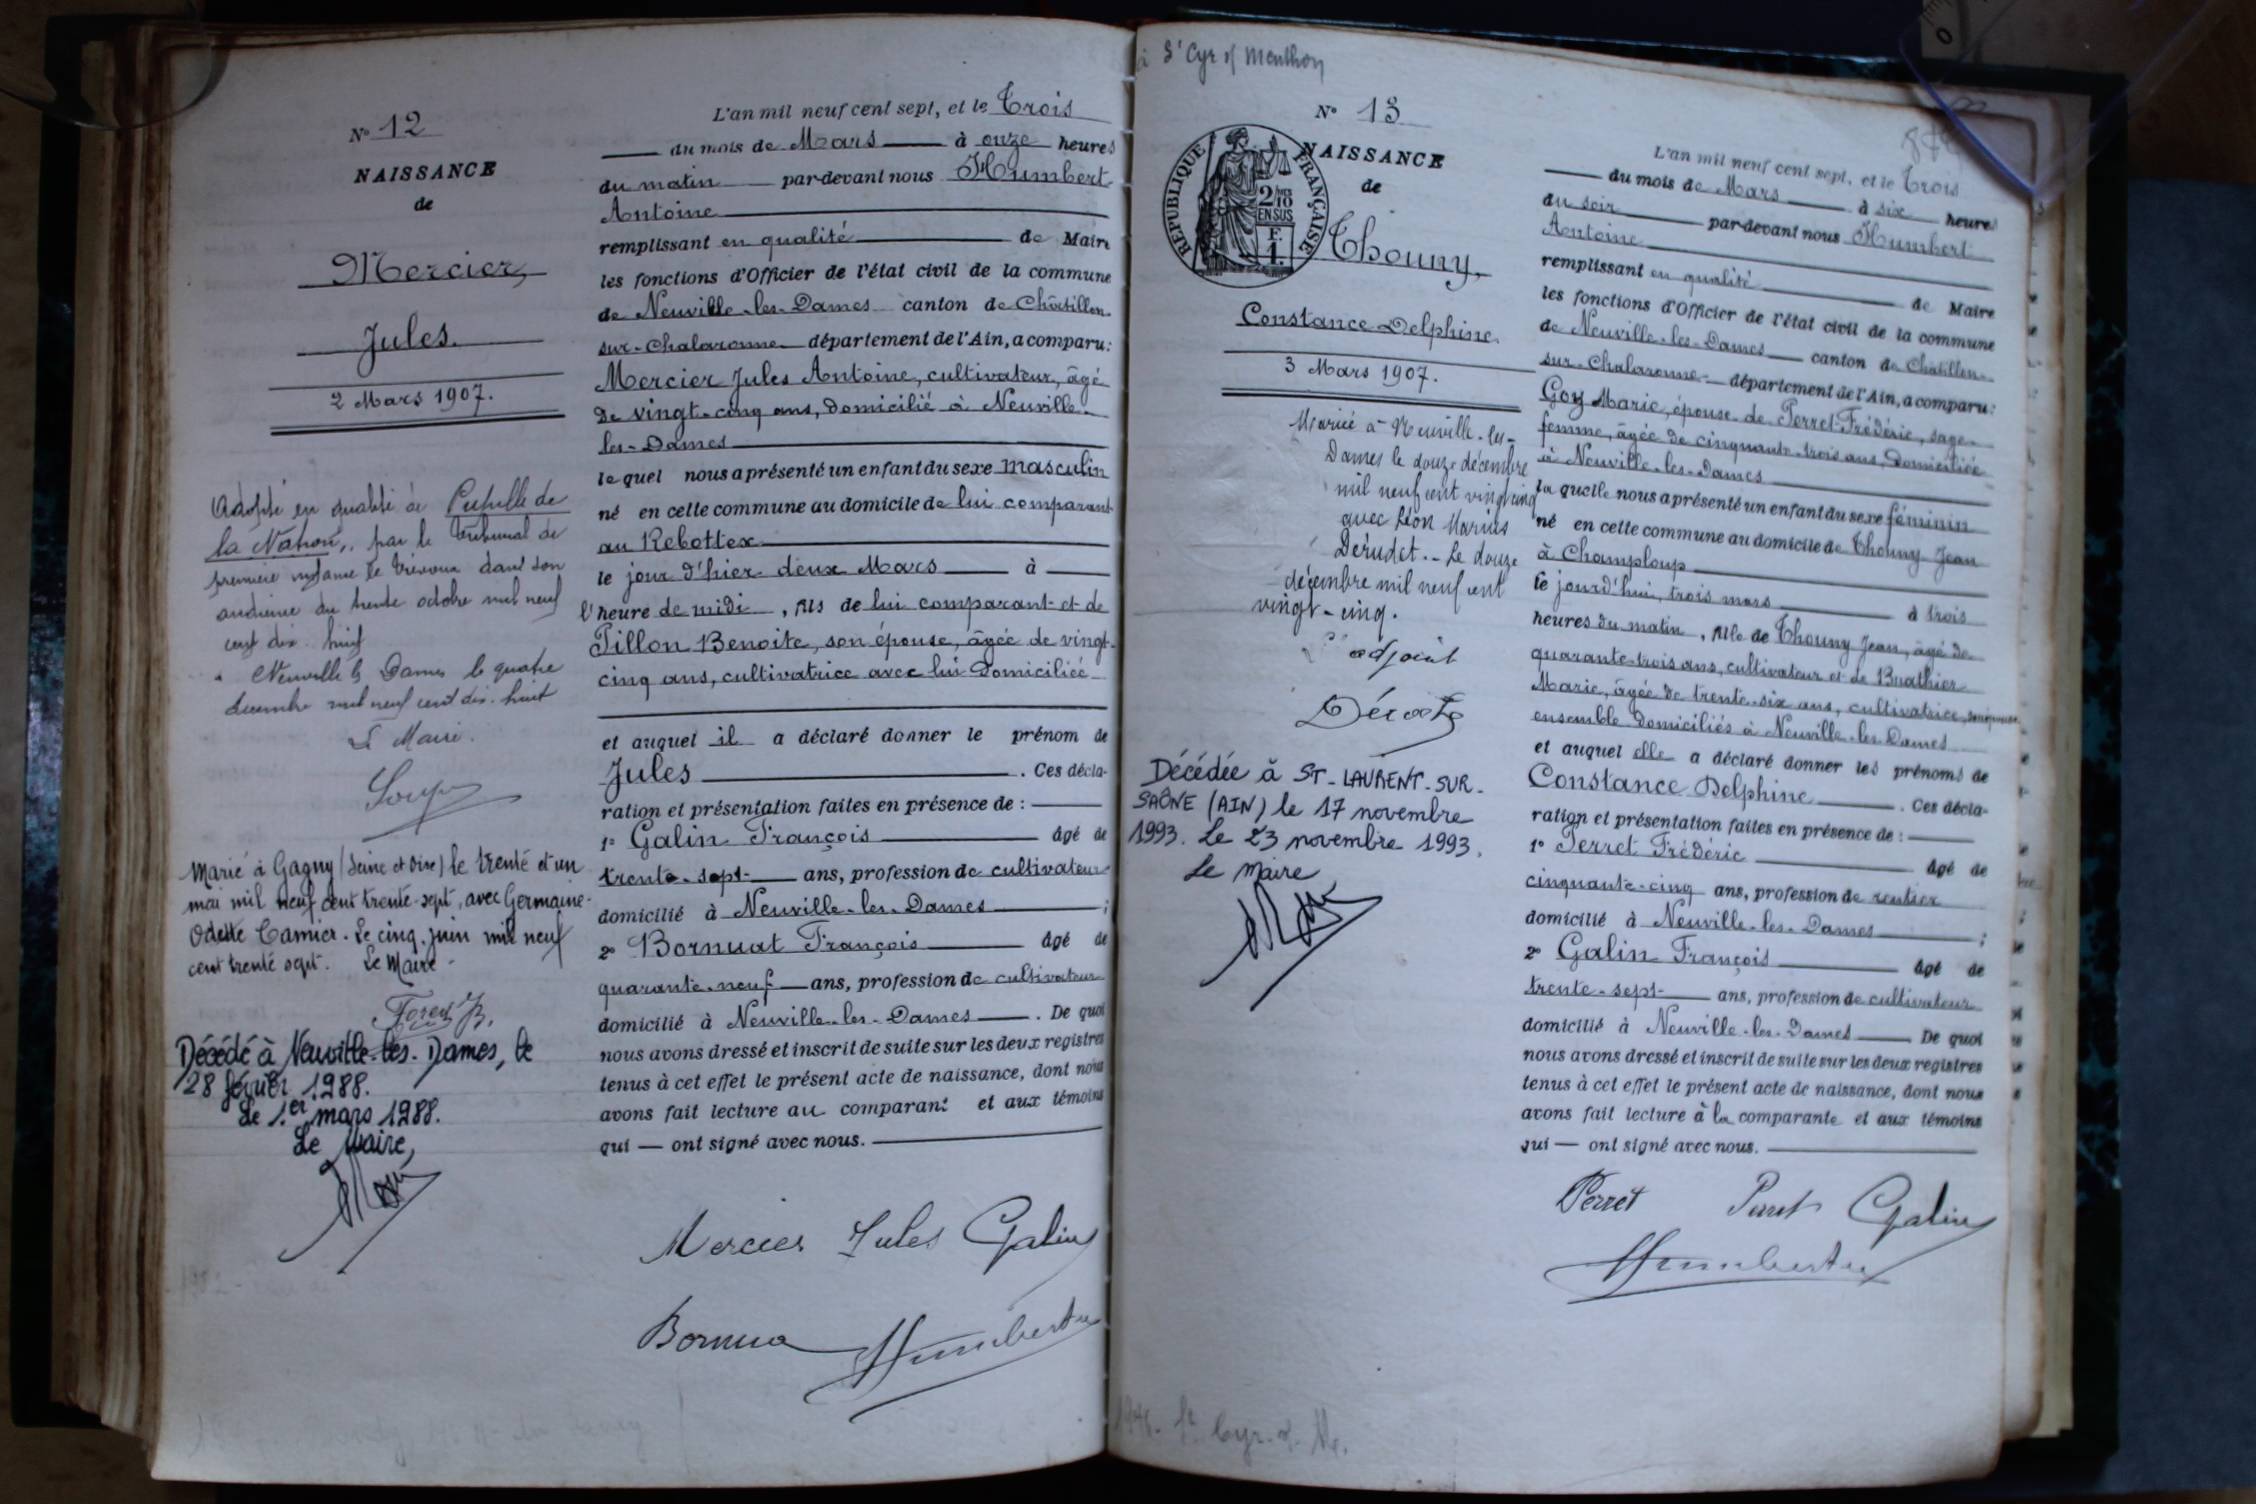 N° 12
NAISSANCE
de
Mercier,
Jules.
2 Mars 1907.
Adopté en qualité de Pupille de
la Nation, par le Tribunal de
première instance de Trévoux dans son
audience du trente octobre mil neuf
cent dix-huit
Neuville les Dames le quatre
décembre mil neuf cent dix-huit
Le Maire.
Marié à Gagny (Seine et Oise) le trente et un
mai mil neuf cent trente-sept, avec Germaine
Odette Camier. Le cinq juin mil neuf
cent trente sept. Le Maire
Décédé à Neuville-les-Dames, le
28 février 1988.
Le 1er mars 1988.
Le Maire,
L'an mil neuf cent sept, et le Trois
du mois de Mars à onze heures
du matin par-devant nous Humbert
Antoine
remplissant en qualité de Maire
les fonctions d'Officier de l'état civil de la commune
de Neuville-les-Dames canton de Châtillon-
sur-Chalaronne département de l'Ain, a comparu:
Mercier Jules Antoine, cultivateur, âgé
de vingt-cinq ans, domicilié à Neuville-
les-Dames
le quel nous a présenté un enfant du sexe masculin
né en cette commune au domicile de lui comparant
au Rebottex
le jour d'hier deux Mars à
l'heure de midi, fils de lui comparant et de
Pillon Benoite, son épouse, âgée de vingt-
cinq ans, cultivatrice avec lui domiciliée
et auquel il a déclaré donner le prénom de
Jules. Ces décla-
ration et présentation faites en présence de :
1° Galin François âgé de
trente-sept ans, profession de cultivateur
domicilié à Neuville-les-Dames ;
2° Bornuat François âgé de
quarante-neuf ans, profession de cultivateur
domicilié à Neuville-les-Dames. De quoi
nous avons dressé et inscrit de suite sur les deux registres
tenus à cet effet le présent acte de naissance, dont nous
avons fait lecture au comparant et aux témoins
qui — ont signé avec nous.
Mercier Jules Galin
Bornua Humbert
à St Cyr s/ Menthon
N° 13
RÉPUBLIQUE FRANÇAISE
2/10
EN SUS
F.
1.
NAISSANCE
de
Thouny,
Constance Delphine.
3 Mars 1907.
Mariée à Neuville-les-
Dames le douze décembre
mil neuf cent vingt cinq
avec Léon Marius
Dérudet.- Le douze
décembre mil neuf cent
vingt-cinq.
adjoint
Décédée à ST-LAURENT-SUR-
SAÔNE (AIN) le 17 novembre
1993. Le 23 novembre 1993.
Le Maire
L'an mil neuf cent sept, et le Trois
du mois de Mars à six heures
du soir par-devant nous Humbert
Antoine
remplissant en qualité de Maire
les fonctions d'Officier de l'état civil de la commune
de Neuville-les-Dames canton de Châtillon-
sur-Chalaronne département de l'Ain, a comparu:
Goy Marie, épouse de Perret Frédéric, sage-
femme, âgée de cinquante-trois ans, domiciliée
à Neuville-les-Dames
la quelle nous a présenté un enfant du sexe féminin
né en cette commune au domicile de Thouny Jean
à Champloup
le jourd'hui, trois mars à trois
heures du matin, fille de Thouny Jean, âgé de
quarante-trois ans, cultivateur et de Buathier
Marie, âgée de trente-six ans, cultivatrice, son épouse
ensemble domiciliés à Neuville-les-Dames
et auquel elle a déclaré donner les prénoms de
Constance Delphine. Ces décla-
ration et présentation faites en présence de :
1° Perret Frédéric âgé de
cinquante-cinq ans, profession de rentier
domicilié à Neuville-les-Dames ;
2° Galin François âgé de
trente-sept ans, profession de cultivateur
domicilié à Neuville-les-Dames De quoi
nous avons dressé et inscrit de suite sur les deux registres
tenus à cet effet le présent acte de naissance, dont nous
avons fait lecture à la comparante et aux témoins
qui — ont signé avec nous.
Perret Perret Galin
Humbert